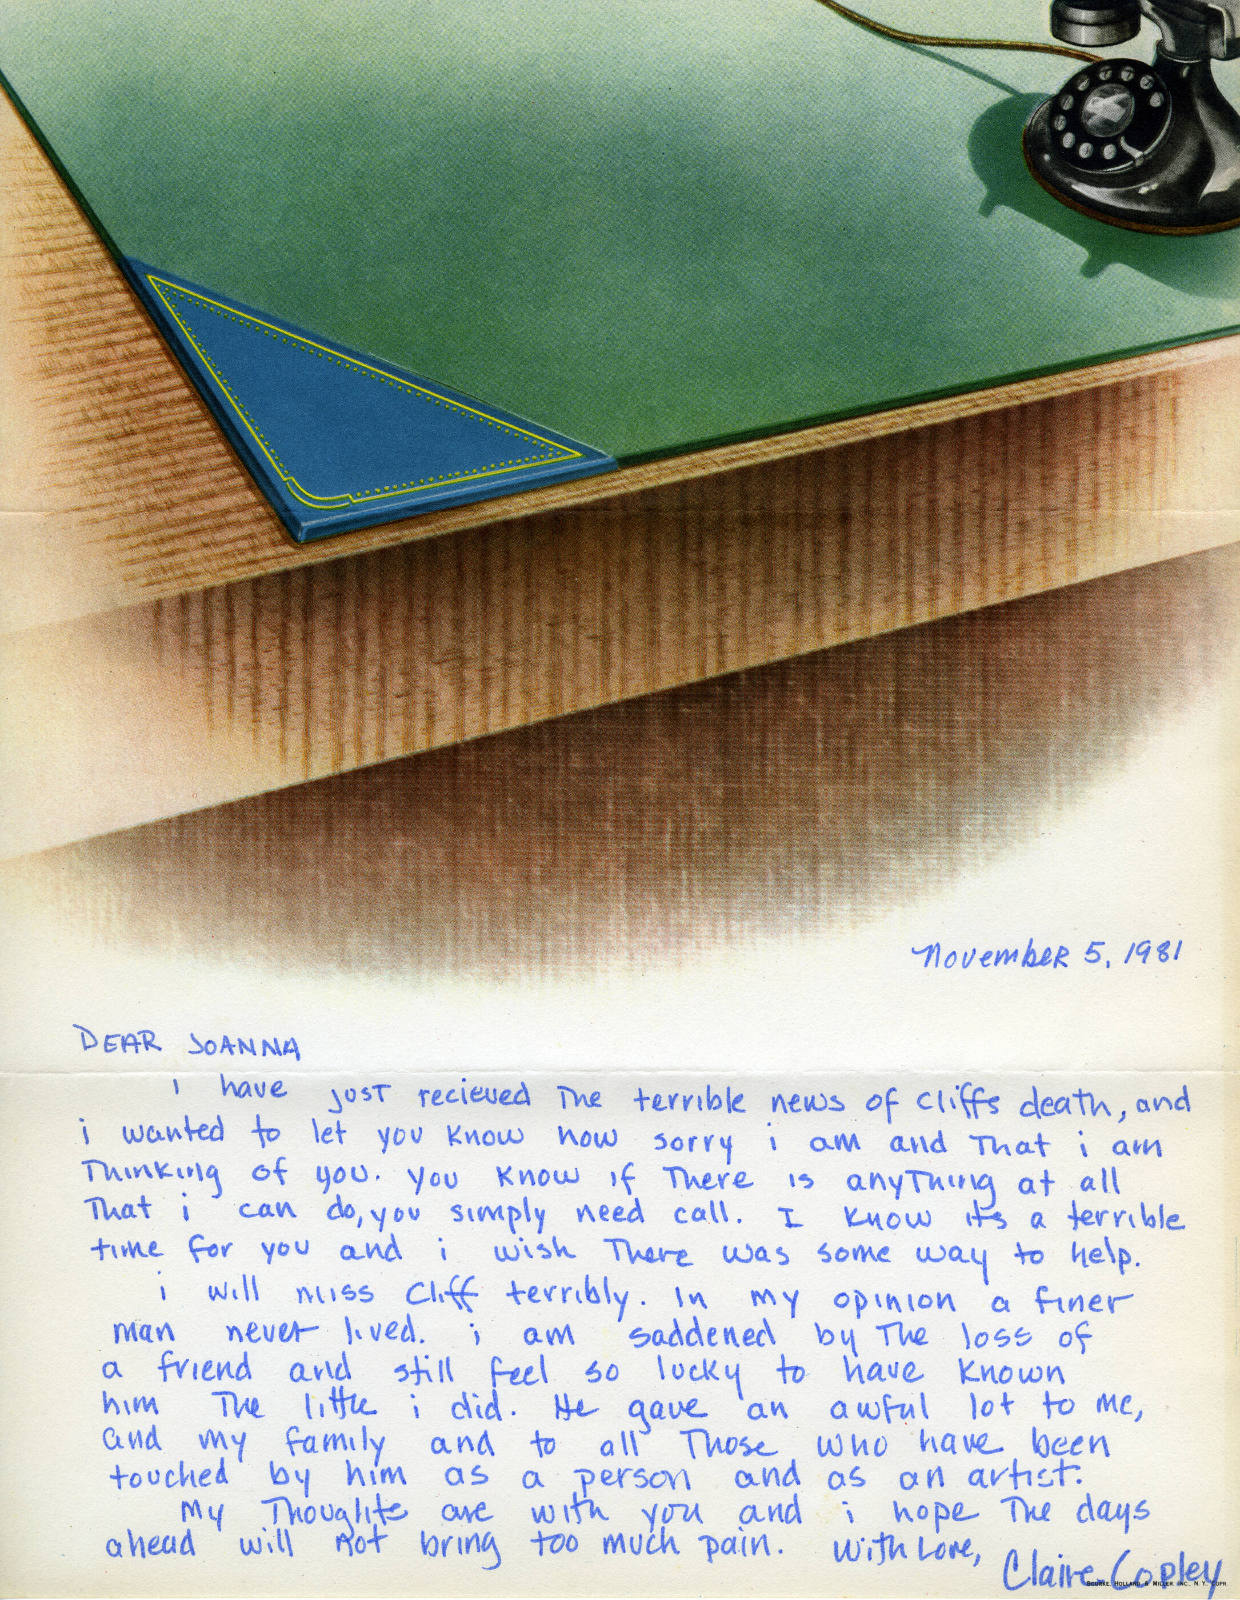 November 5, 1981
DEAR JOANNA
i have just recieved The terrible news of Cliffs death, and
i wanted to let you know how sorry i am and That i am
Thinking of you. you know if There is anyThing at all
That i can do, you simply need call. I know its a terrible
time for you and i wish There was some way to help.
i will miss Cliff terribly. In my opinion a finer
man never lived. i am saddened by The loss of
a friend and still feel so lucky to have known
him The little i did. He gave an awful lot to me,
and my family and to all Those who have been
touched by him as a person and as an artist.
My Thoughts are with you and i hope The days
ahead will not bring too much pain. With Love,
Claire Copley
BOURKE, HOLLAND & MILLER INC., N. Y. COPR.